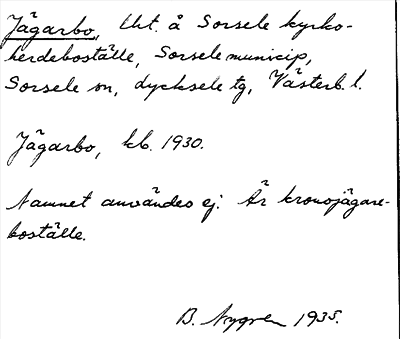 Jägarbo, Uht. å Sorsele kyrko-
herdeboställe, Sorsele municip,
Sorsele sn, Lycksele tg, Västerb. l.
Jägarbo, kb. 1930.
Namnet användes ej. Är kronojägare-
boställe.
B. Nygren 1935.